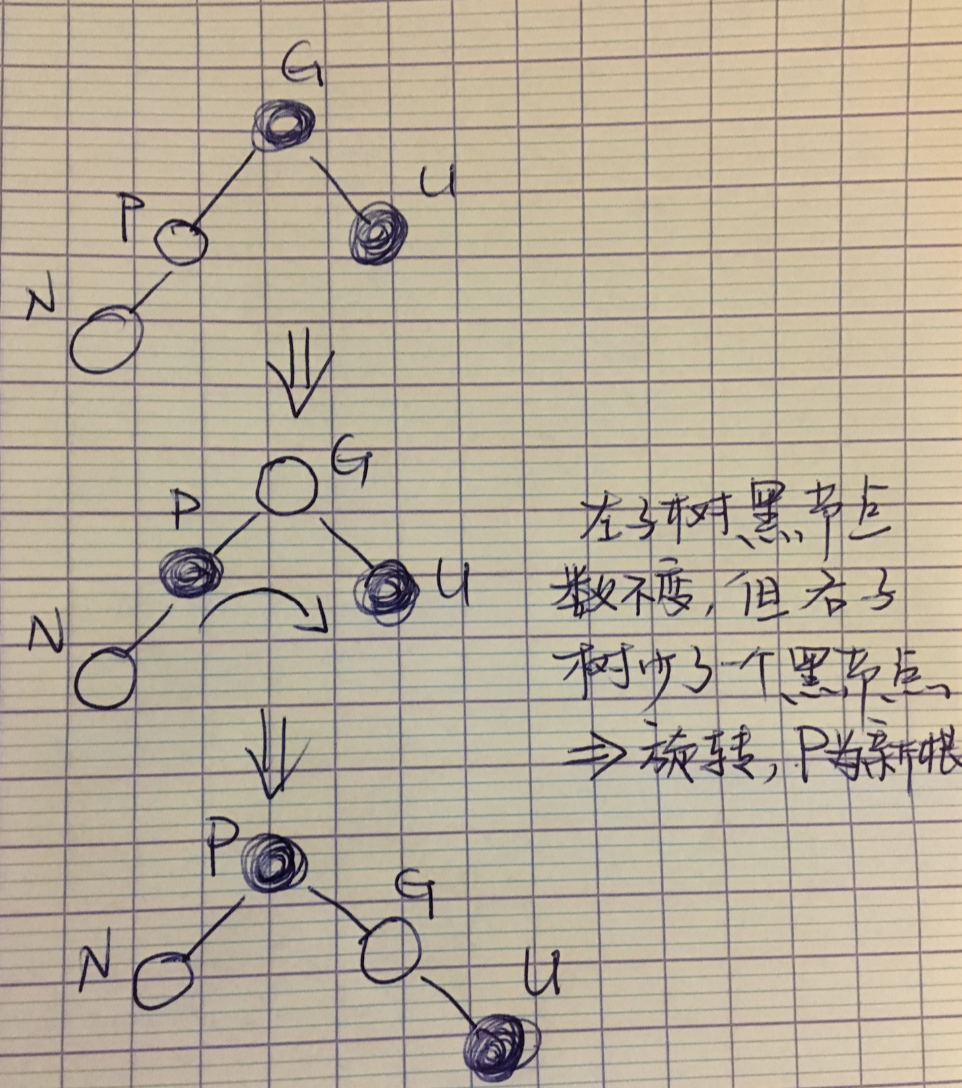 G
U
P
N
G
P
U
N
左子树黑节点
数不变,但右子
树少了一个黑节点
⇒旋转,P为新根
P
G
N
U